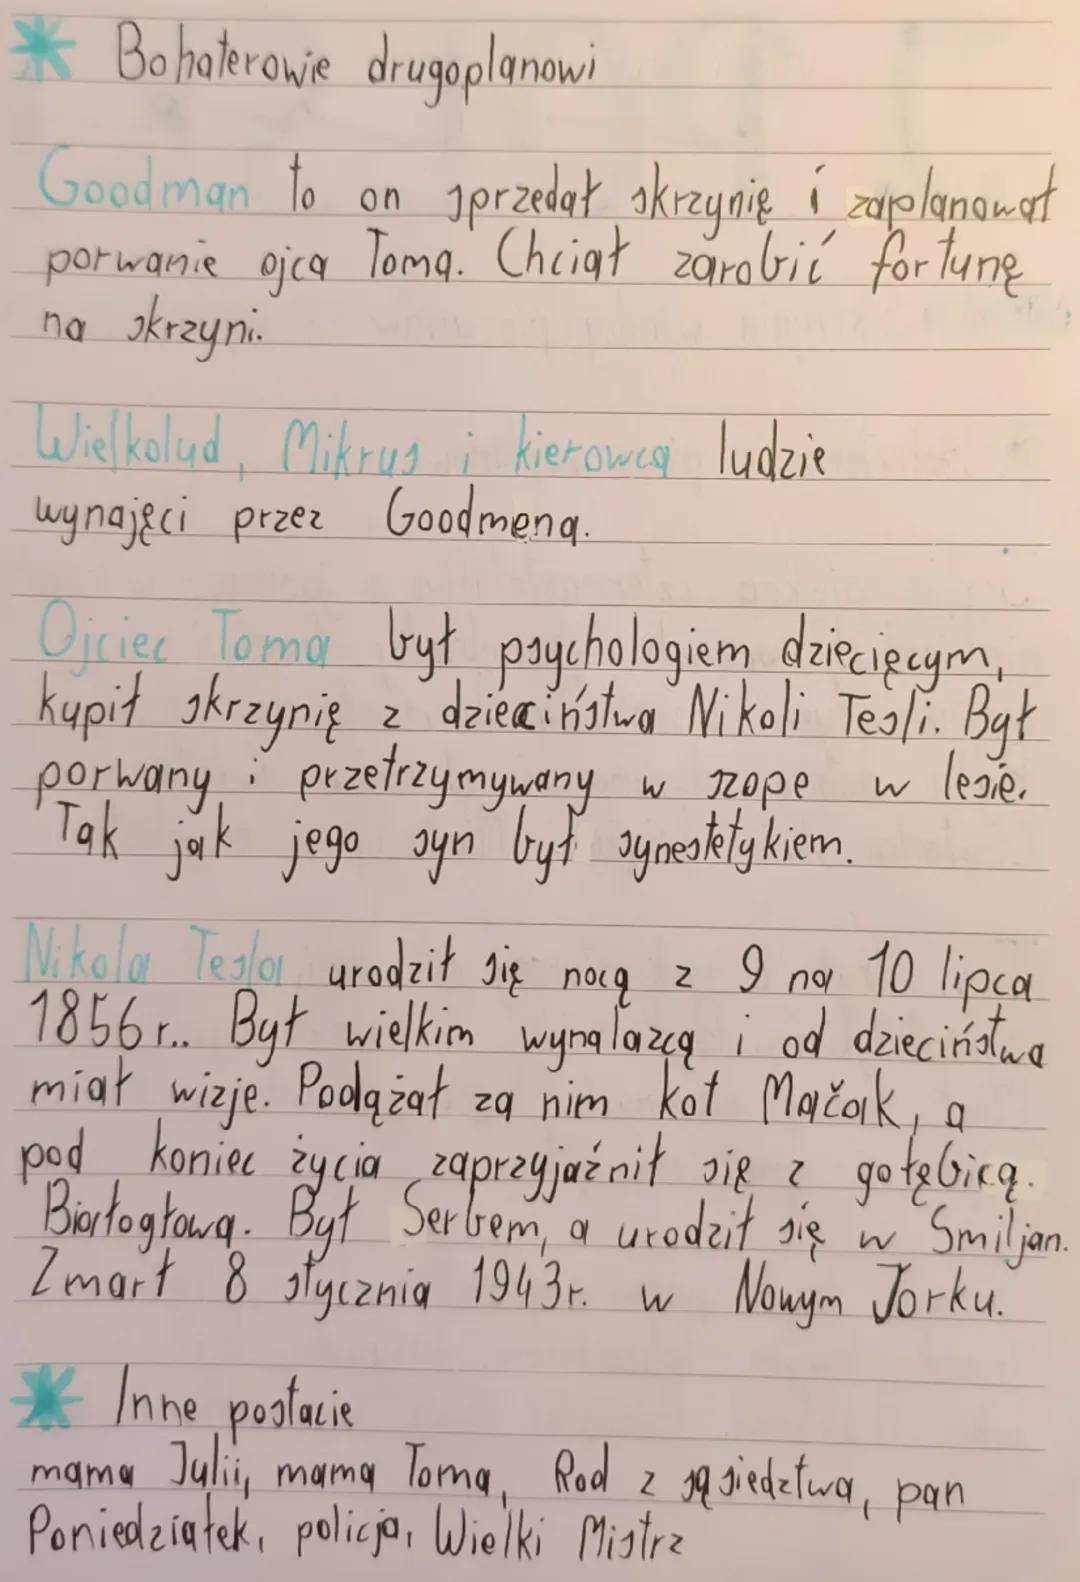 Bohaterowie drugoplanowi
Goodman to on sprzedał skrzynię i zaplanował
porwanie ojca Toma. Chciał zarobić fortunę
na skrzyni.
Wielkolud, Mikrus i kierowca ludzie
wynajęci przez Goodmena.
Ojciec Toma był psychologiem dziecięcym,
kupił skrzynię z dzieciństwa Nikoli Tesli. Był
porwany i przetrzymywany w szopę w lesie.
Tak jak jego syn był synestetykiem.
Nikola Tesla urodził się nocą z 9 na 10 lipca
1856r.. Był wielkim wynalazcą i od dzieciństwa
miał wizje. Podążał za nim kot Mačak, a
pod koniec życia zaprzyjaźnił się z gołębicą.
Białogłową. Był Serbem, a urodził się w Smiljan.
Zmarł 8 stycznia 1943r. w Nowym Jorku.
Inne postacie
mama Julii, mama Toma, Rod z sąsiedztwa, pan
Poniedziałek, policja, Wielki Mistrz